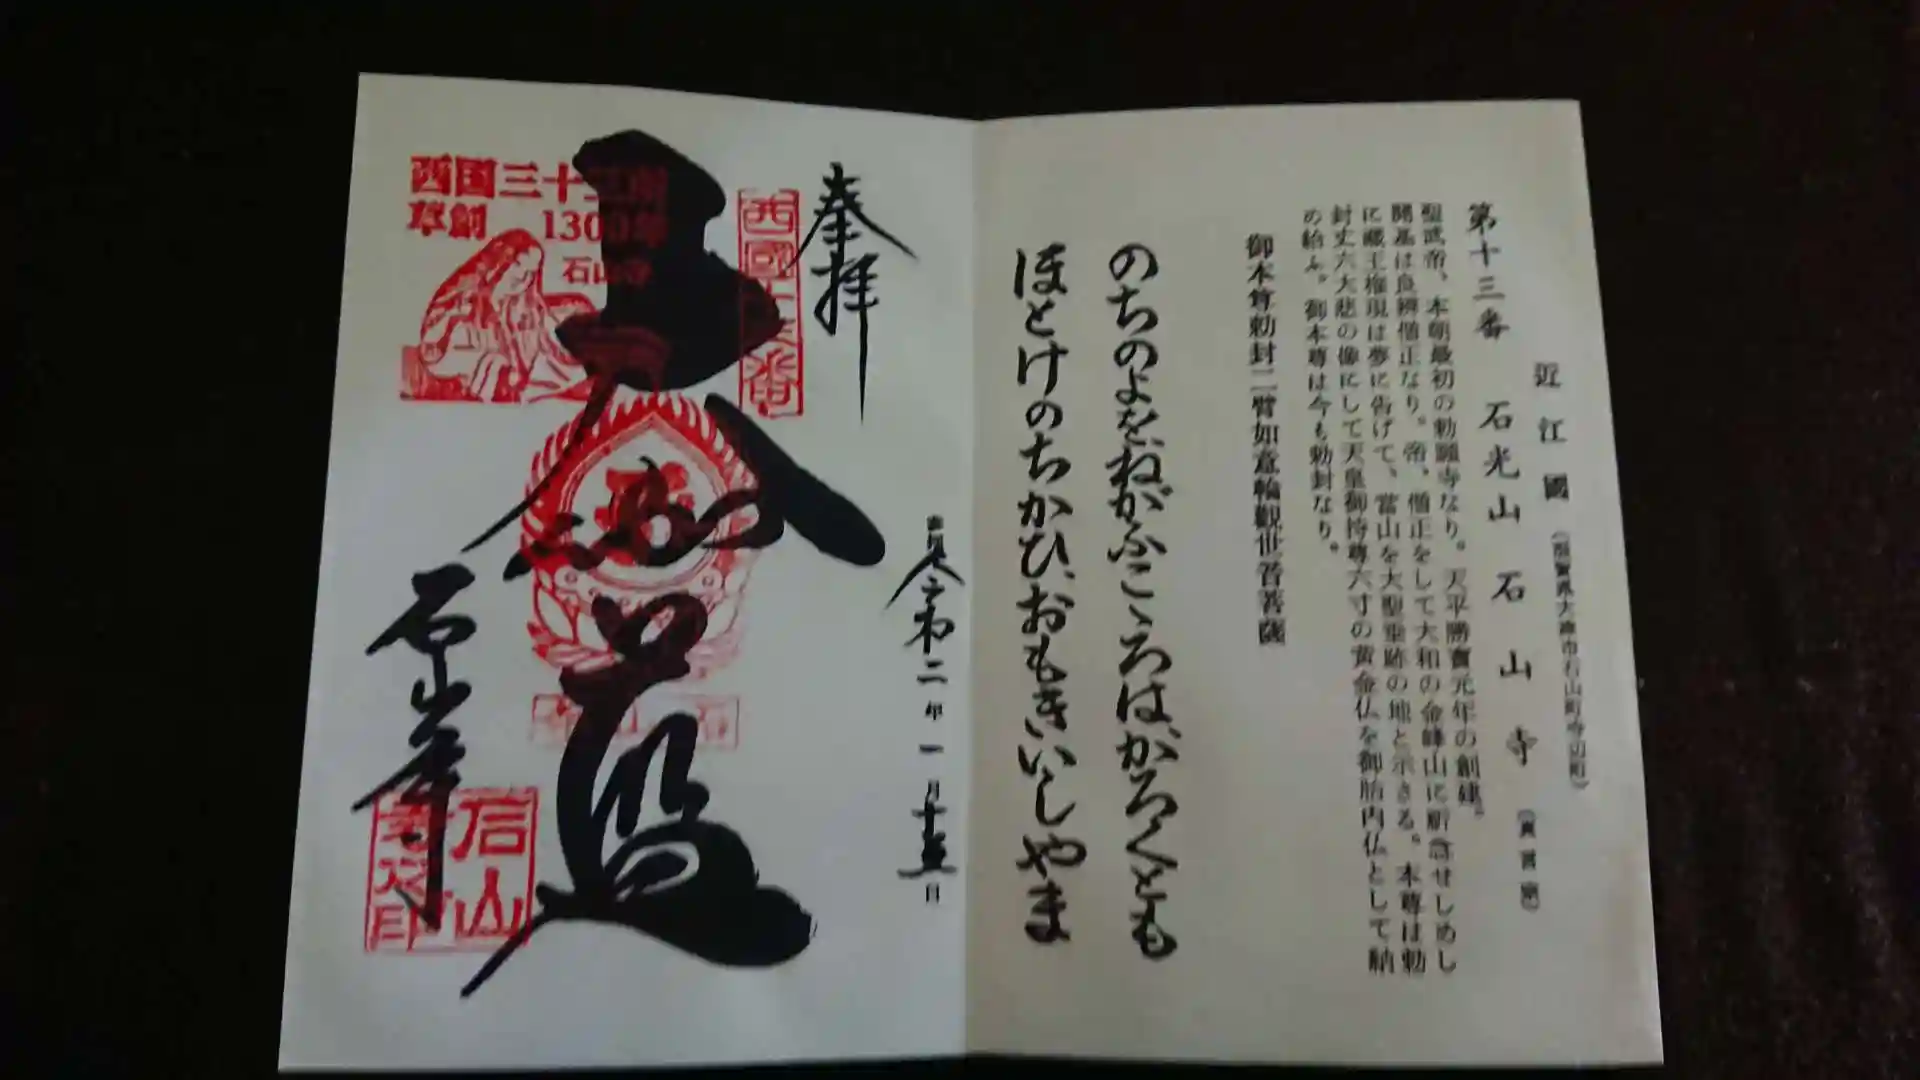 近江國（滋賀県大津市石山町寺辺町）
第十三番 石光山 石山寺（真言宗）
聖武帝、本朝最初の勅願寺なり。天平勝寶元年の創建。
開基は良辨僧正なり。帝、僧正をして大和の金峰山に祈念せしめし
に蔵王権現は夢に告げて、當山を大聖垂跡の地と示さる。本尊は勅
封丈六大悲の像にして天皇御持尊六寸の黄金仏を御胎内仏として納
め給ふ。御本尊は今も勅封なり。
御本尊勅封二臂如意輪觀世音菩薩
のちのよをねがふこゝろはかろくとも
ほとけのちかひおもきいしやま
奉拝
西國十三番
令和二年一月十五日
西国三十三所
草創 1300年
石山寺
大悲殿
石山寺
石山
寺之印